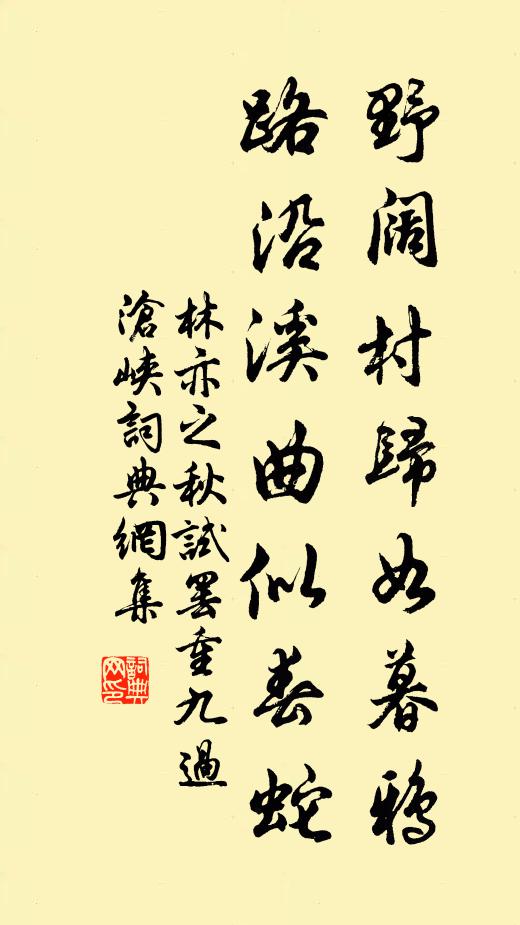 野阔村歸如暮鴉
路沿溪曲似春蛇
林亦之秋試罢重九過
滄峡詞典網集
詞典网印